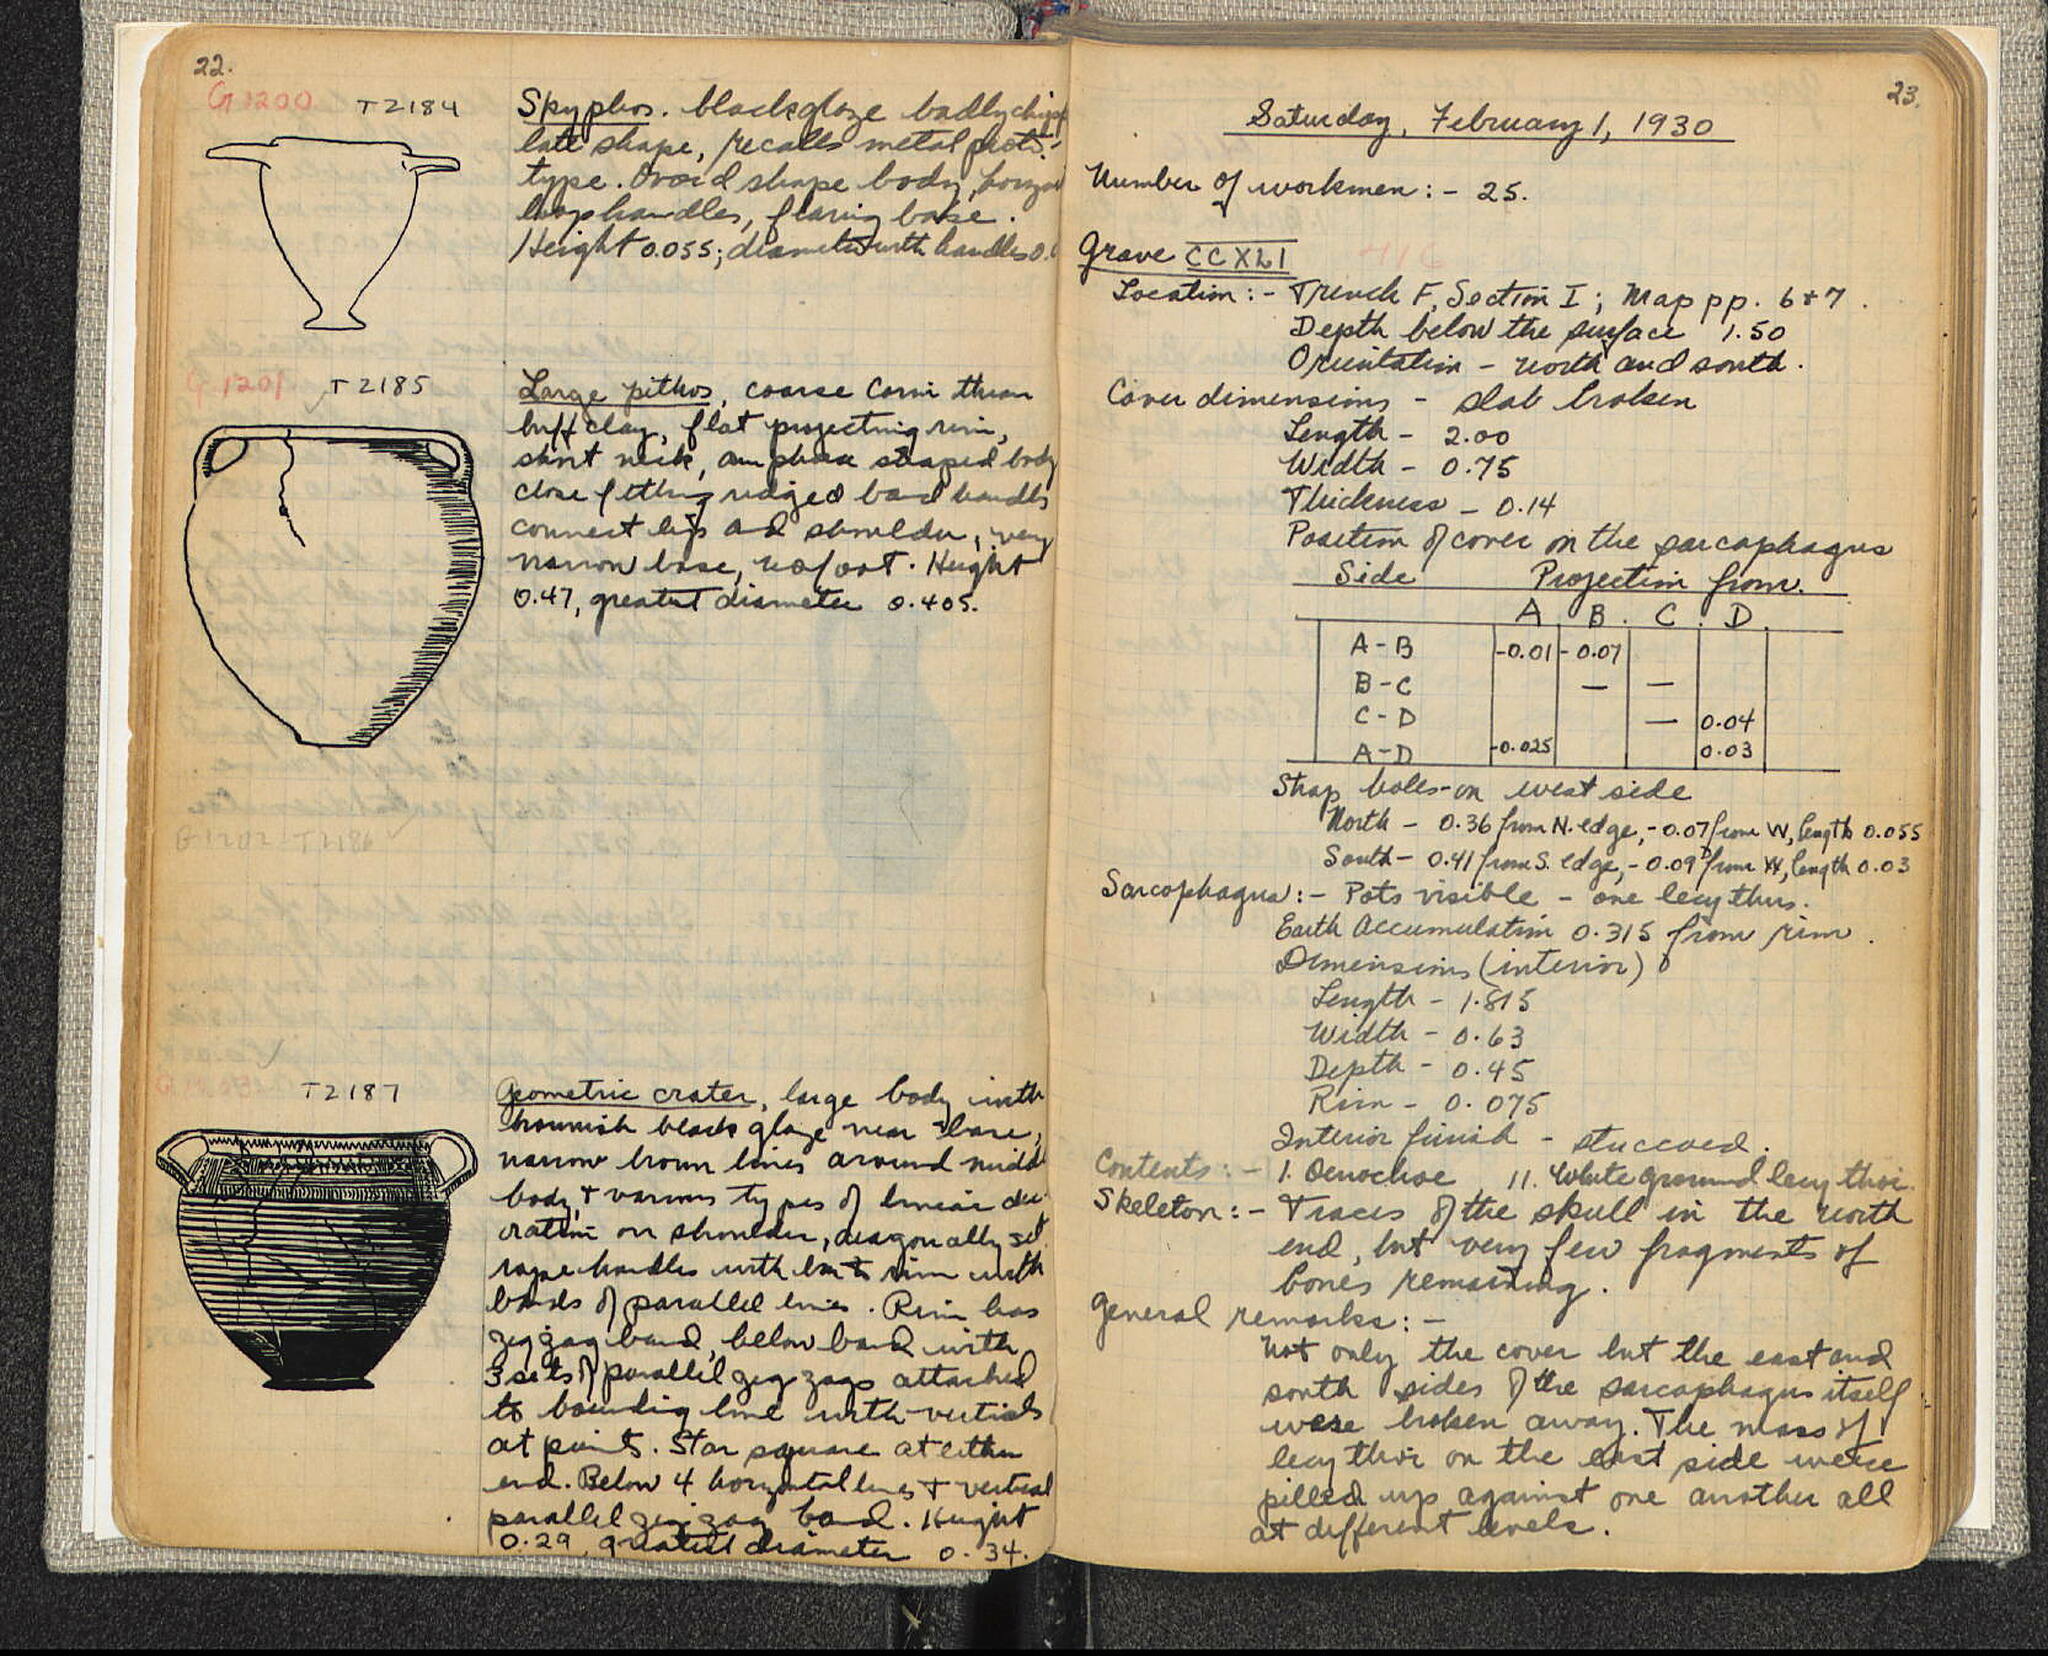 22.
G 1200 T 2184
Skyphos. black glaze badly
late shape, recalls metal proto-
type. Ovoid shape body,
loop handles, flaring base.
Height 0.055; diameter with handles
G 1201 T 2185
Large pithos, coarse Corinthian
buff clay, flat projecting rim,
short neck, amphora shaped body
close fitting ridged band handles
connect lip and shoulder, very
narrow base, no foot. Height
0.47, greatest diameter 0.405.
G 1202 - T 2186
T 2187
Geometric crater, large body with
brownish black glaze near base,
narrow brown lines around
body, & various types of linear dec-
oration on shoulder, diagonally set
rope handles with rim with
bands of parallel lines. Rim has
zigzag band, below band with
3 sets of parallel zigzags attached
to bounding line with verticals
at points. Star square at either
end. Below 4 horizontal lines & vertical
parallel zigzag band. Height
0.29, greatest diameter 0.34.
23.
Saturday, February 1, 1930
Number of workmen: - 25.
Grave CCXLI
416
Location: - Trench F, Section I; Map pp. 6 & 7.
Depth below the surface 1.50
Orientation - north and south.
Cover dimensions - slab broken
Length - 2.00
Width - 0.75
Thickness - 0.14
Position of cover on the sarcophagus
Side Projection from.
A B C D
A-B -0.01 -0.07
B-C — —
C-D — 0.04
A-D -0.025 0.03
Strap holes - on west side
North - 0.36 from N. edge, - 0.07 from W, length 0.055
South - 0.41 from S. edge, - 0.09 from W, length 0.03
Sarcophagus: - Pots visible - one lecythus.
Earth Accumulation 0.315 from rim.
Dimensions (interior)
Length - 1.815
Width - 0.63
Depth - 0.45
Rim - 0.075
Interior finish - stuccoed.
Contents: - 1. Oenochoe 11. White ground lecythoi.
Skeleton: - Traces of the skull in the north
end, but very few fragments of
bones remaining.
General remarks: -
Not only the cover but the east and
south sides of the sarcophagus itself
were broken away. The mass of
lecythoi on the east side were
pilled up against one another all
at different levels.